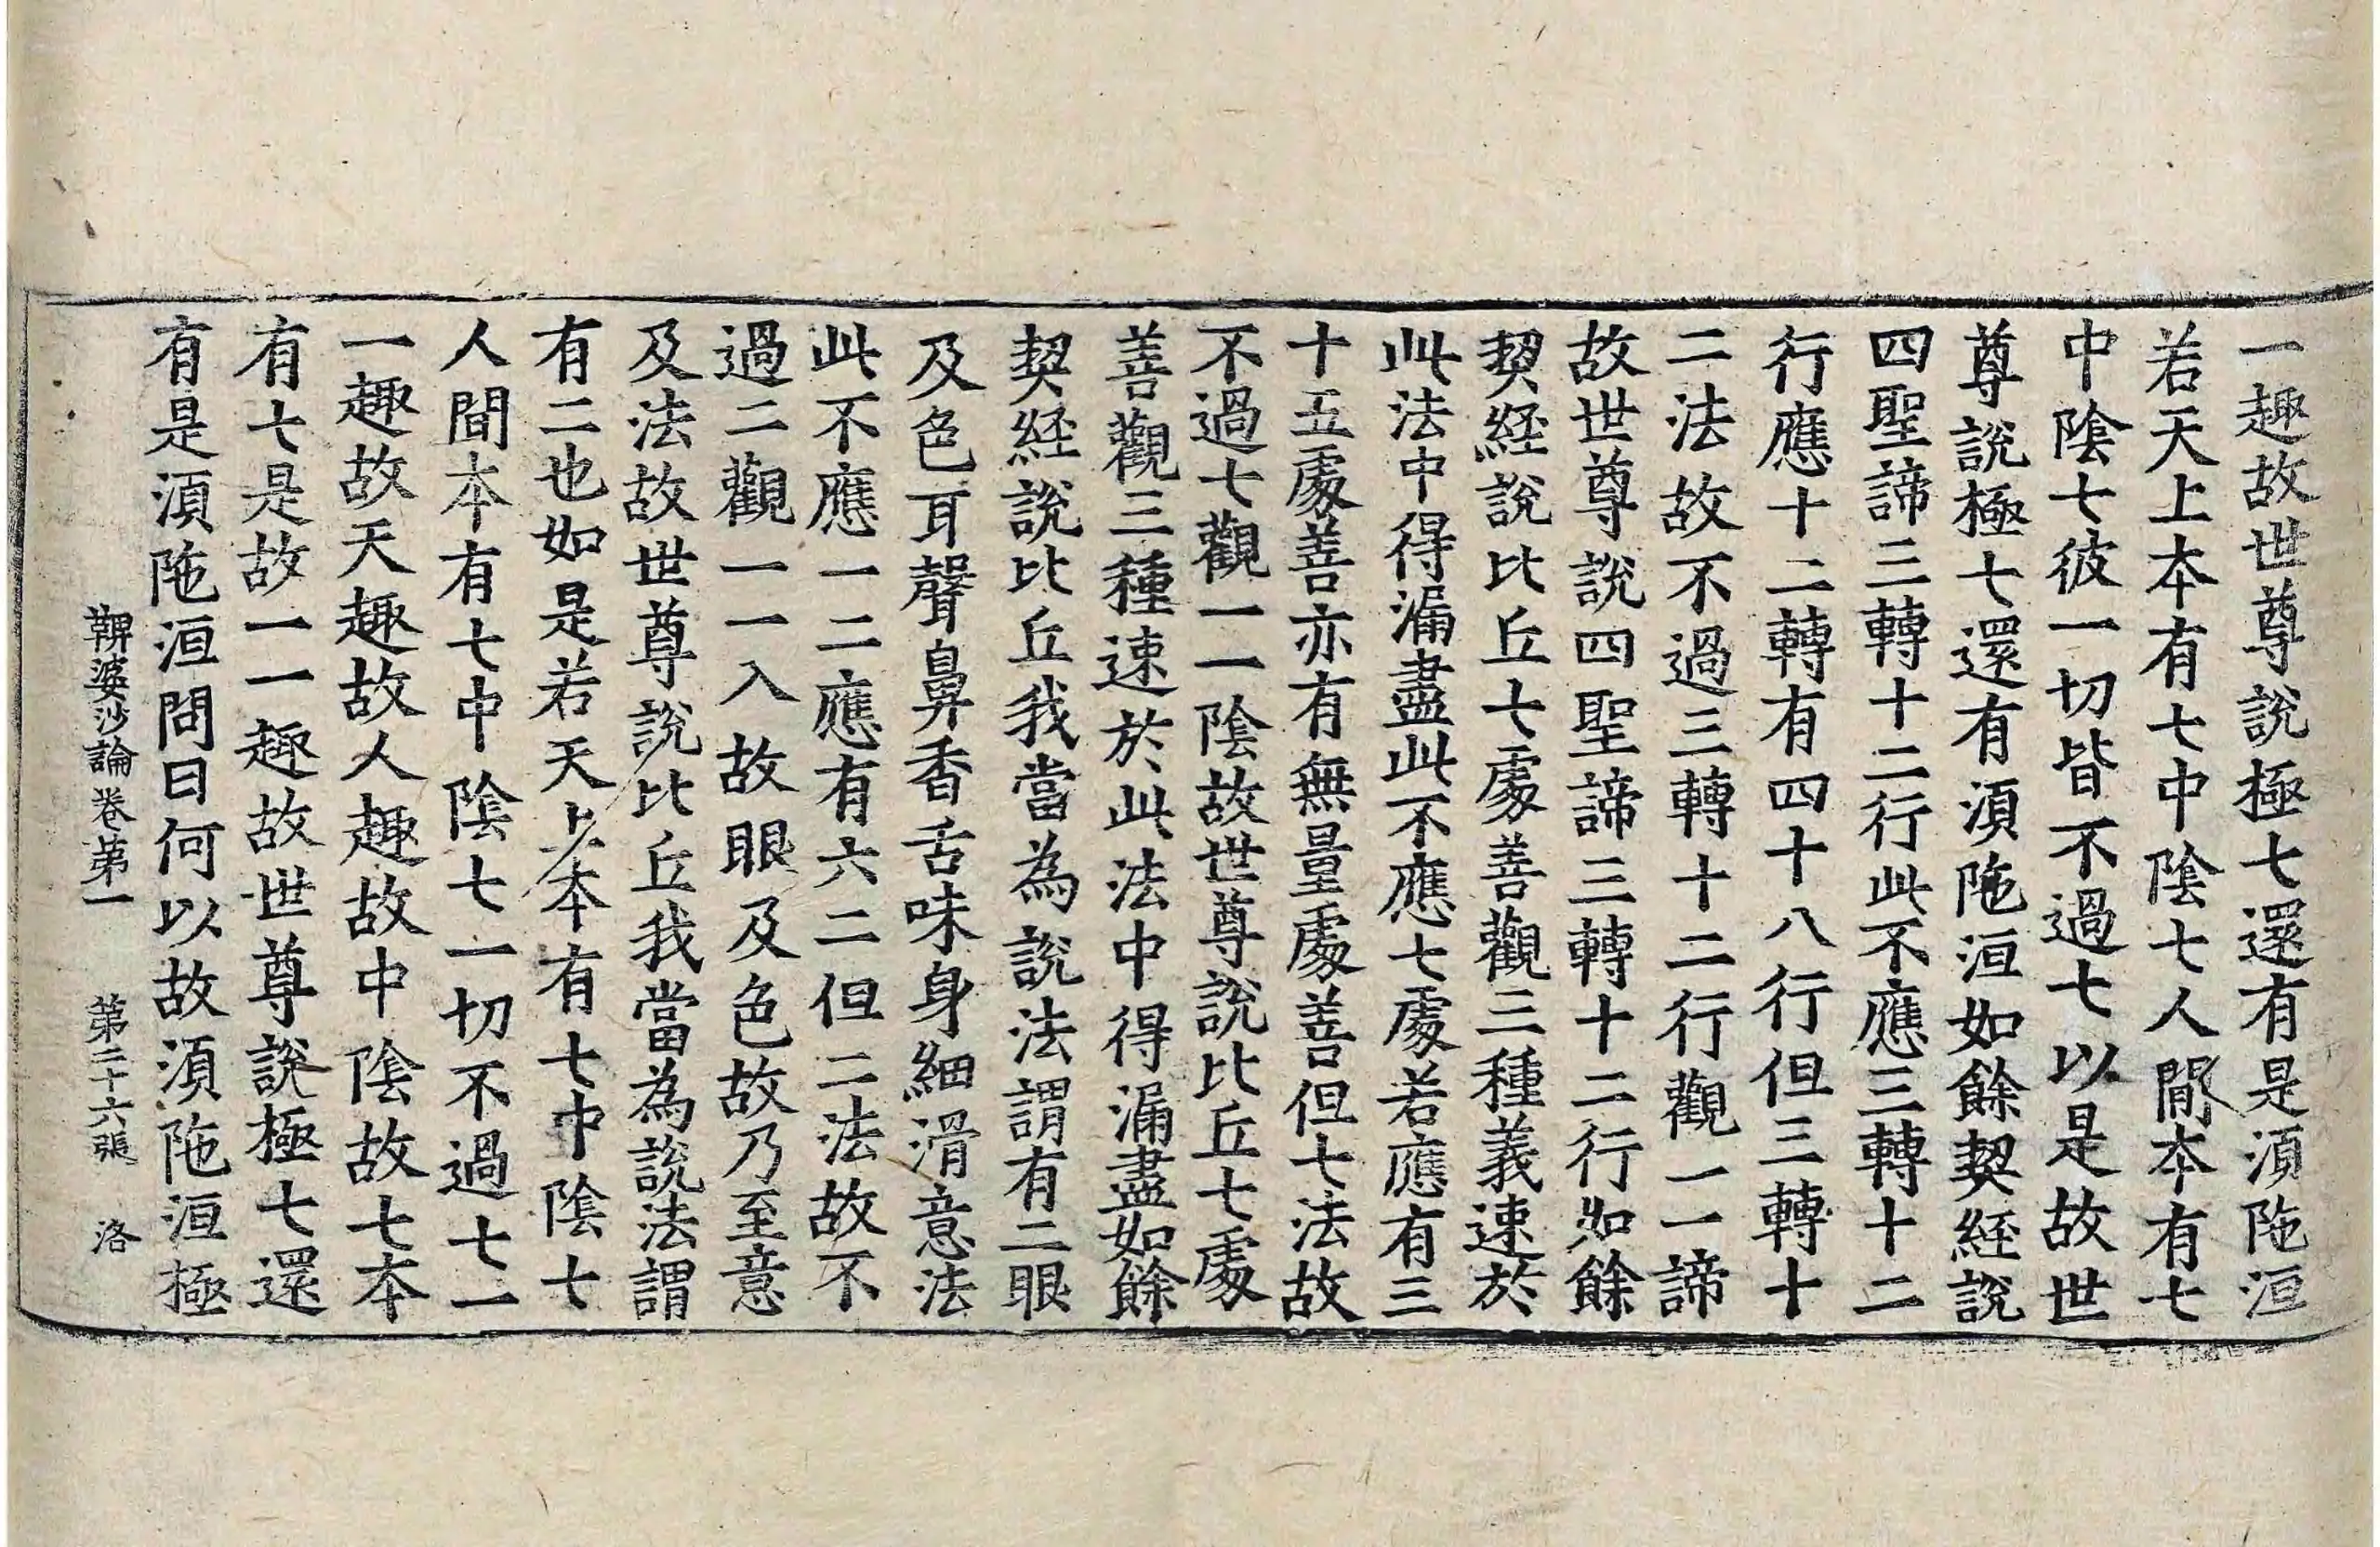 一趣故世尊說極七還有是湏陁洹
若天上本有七中陰七人間本有七
中陰七彼一切皆不過七以是故世
尊說極七還有湏陁洹如餘契經說
四聖諦三轉十二行此不應三轉十二
行應十二轉有四十八行但三轉十
二法故不過三轉十二行觀一一諦
故世尊說四聖諦三轉十二行如餘
契經說比丘七處善觀三種義速於
此法中得漏盡此不應七處若應有三
十五處善亦有無量處善但七法故
不過七觀一一陰故世尊說比丘七處
善觀三種速於此法中得漏盡如餘
契経說比丘我當為說法謂有二眼
及色耳聲鼻香舌味身細滑意法
此不應一二應有六二但二法故不
過二觀一一入故眼及色故乃至意
及法故世尊說比丘我當為說法謂
有二也如是若天上本有七中陰七
人間本有七中陰七一切不過七一
一趣故天趣故人趣故中陰故七本
有七是故一一趣故世尊說極七還
有是湏陁洹問曰何以故湏陁洹極
鞞婆沙論卷第一 第二十六張 洛